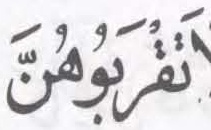 تَقْرَبُوهُنَّ